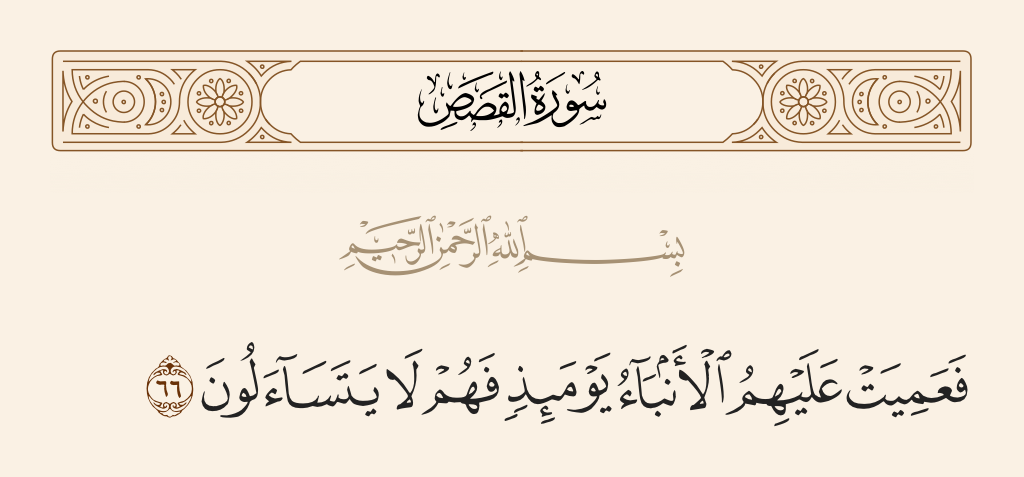 سُورَةُ القَصَصِ
بِسْمِ ٱللَّهِ ٱلرَّحْمَٰنِ ٱلرَّحِيمِ
فَعَمِيَتْ عَلَيْهِمُ ٱلْأَنۢبَآءُ يَوْمَئِذٍ فَهُمْ لَا يَتَسَآءَلُونَ ٦٦